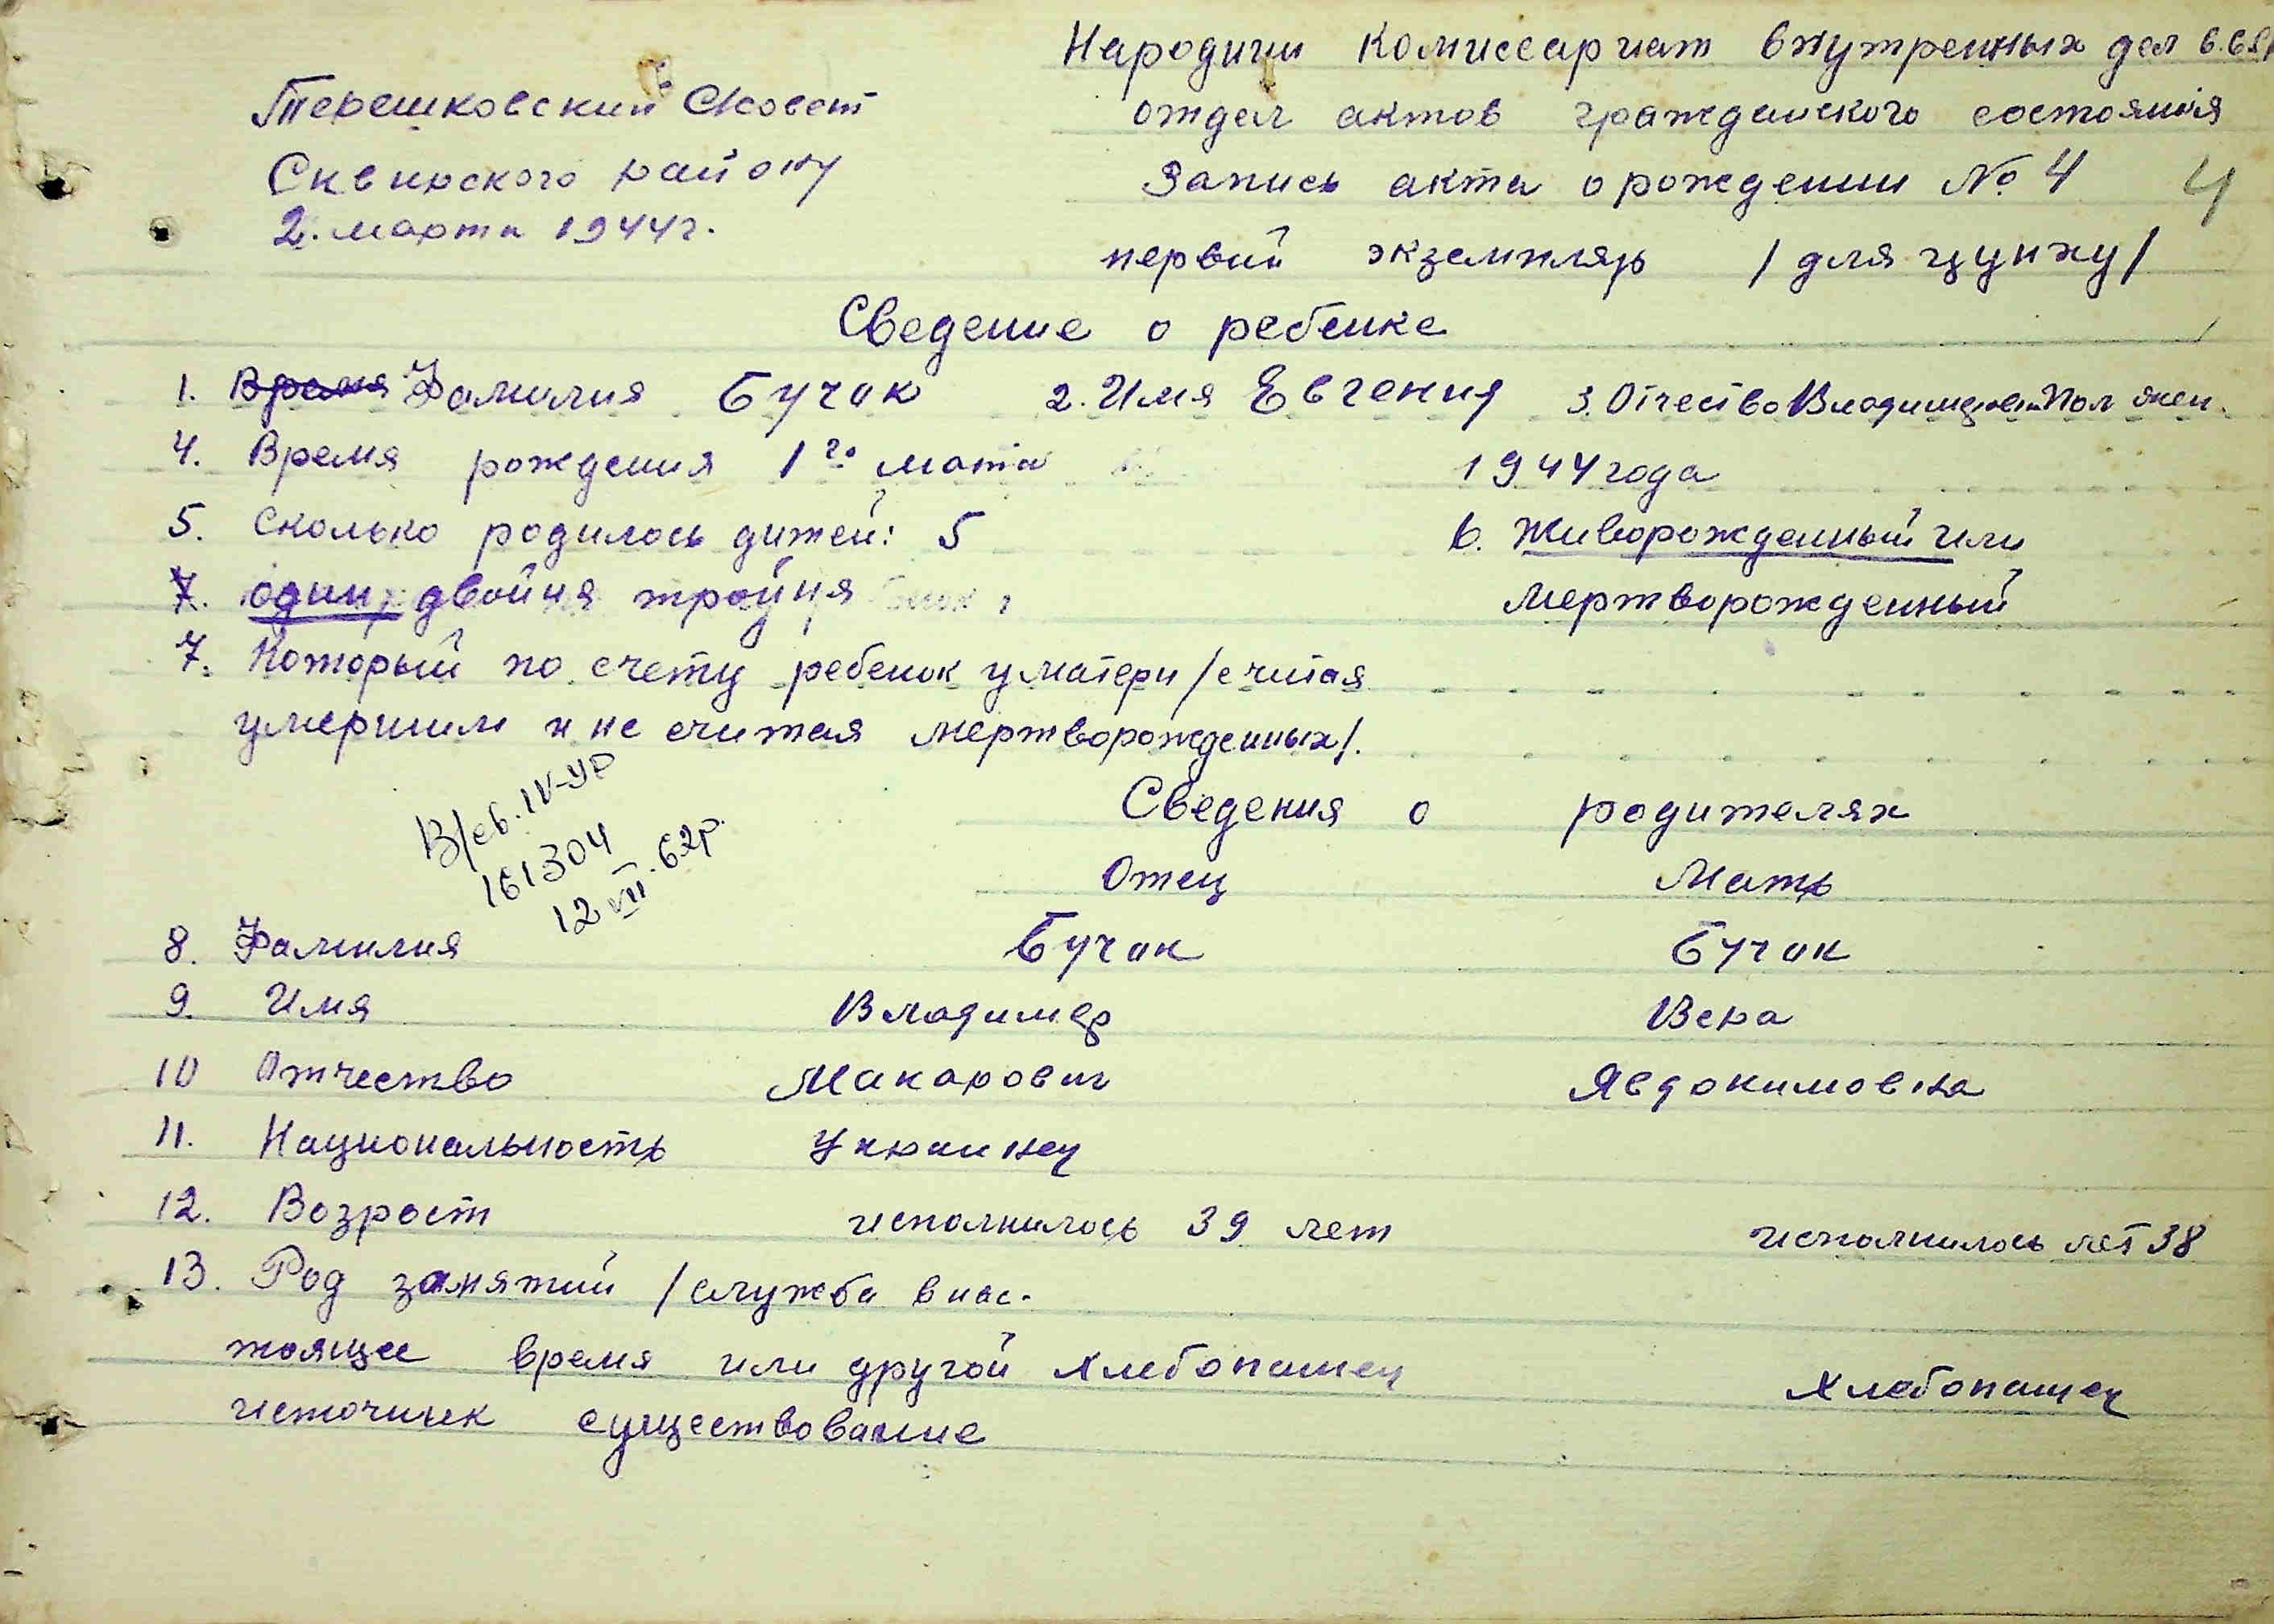 Народичи Комиссариат внутренных дел
отдел актов гражданского состояния
Запись акта о рождении № 4 4
первий экземпляр /для цунху/
Терешковский С/совет
Сквирского району
2. марта 1944г.
Сведение о ребенке
1. Время Фамилия Бучак 2. Имя Евгения 3. Отчество Пол жен.
4. Время рождения 1го 1944 года
5. Сколько родилось дитей: 5 6. Живорожденный или
7. один, двойня тройня мертворожденный
7. Который по счету ребенок у матери /считая
умершим и не считая мертворожденных/.
В/св. IV-УР
161304
12 VII. 62р.
Сведения о родителях
Отец Мать
8. Фамилия Бучак Бучак
9. Имя Владимер Вера
10 Отчество Макарович Явдокимовна
11. Национальность Украинец
12. Возраст исполнилось 39 лет исполнилось лет 38
13. Род занятий /служба в нас-
тоящее время или другой Хлебопашец Хлебопашец
источник существование